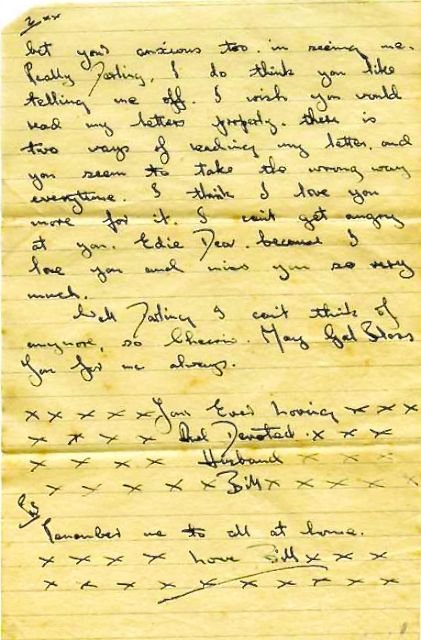 2 xx
bet your anxious too. in seeing me.
Really Darling, I do think you like
telling me off. I wish you would
read my letters properly. there is
two ways of reading my letter. and
you seem to take the wrong way
everytime. I think I love you
more for it. I can't get angry
at you. Edie Dear. because I
love you and miss you so very
much.
Well Darling I can't think of
anymore, so Cheerio. May God Bless
You for me always.
x x x x x x Your Ever Loving x x x x
x x x x x And Devoted. x x x x
x x x x x Husband x x x x
x x x x x Bill x x x x x
PS
Remember me to all at home.
x x x x Love Bill x x x x
x x x x x x x x x x